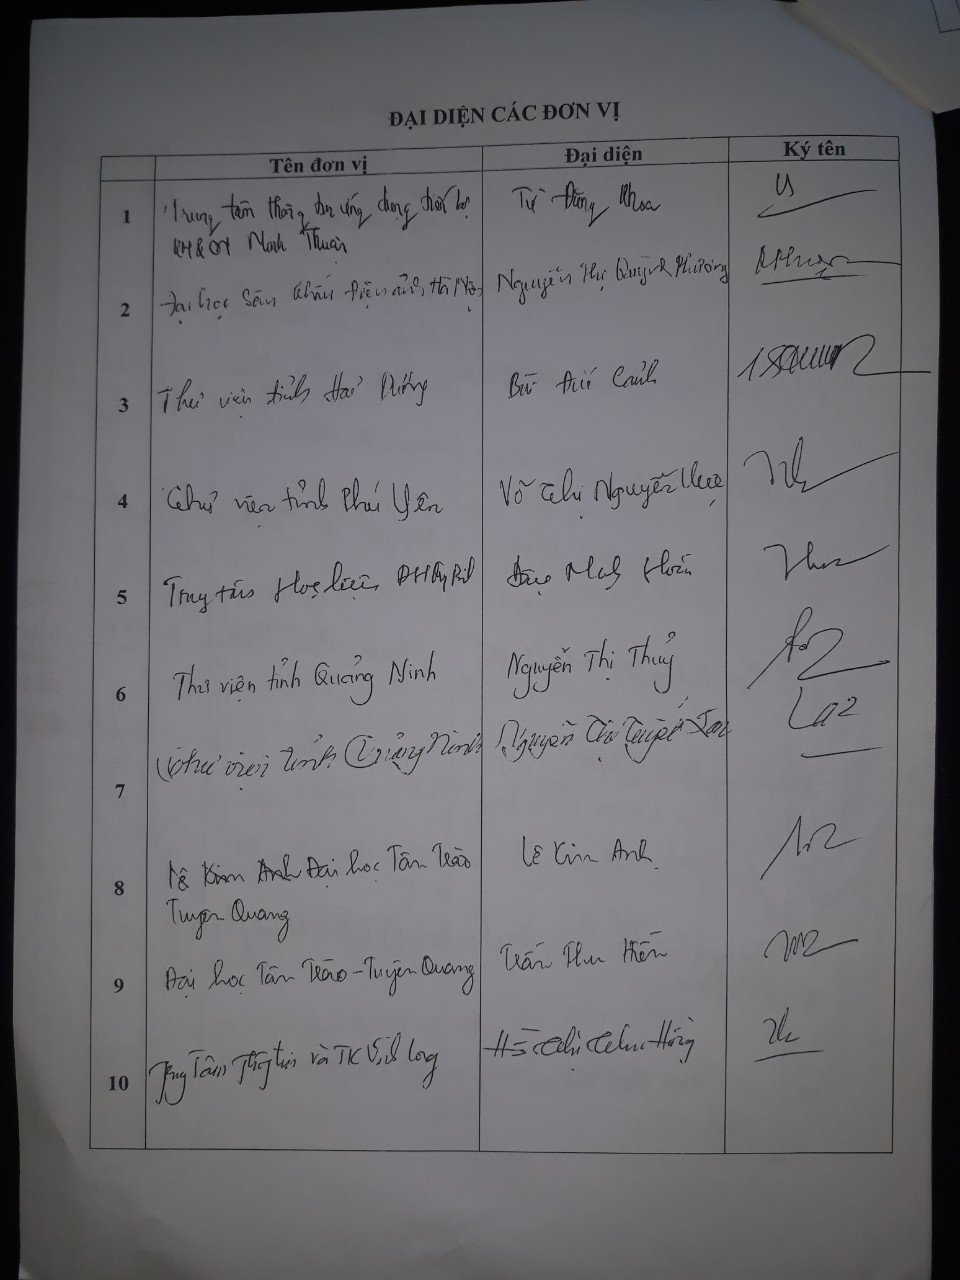 ĐẠI DIỆN CÁC ĐƠN VỊ
Tên đơn vị Đại diện Ký tên
1 Trung tâm thông tin ứng dụng tiến bộ Từ Đăng Khoa
KH&CN Ninh Thuận
2 Đại học Sân khấu Điện ảnh Hà Nội Nguyễn Thị Quỳnh Phương
3 Thư viện tỉnh Hải Dương Cảnh
4 Thư viện tỉnh Phú Yên Võ Thị Nguyễn
5 Trung tâm Học liệu
6 Thư viện tỉnh Quảng Ninh Nguyễn Thị Thuỷ
7 Thư viện tỉnh Quảng Ninh Nguyễn Thị Tuyết
8 Lê Kim Anh Đại học Tân Trào Lê Kim Anh
Tuyên Quang
9 Đại học Tân Trào - Tuyên Quang Trần Thu Hiền
10 Trung Tâm Thông tin và TK Vĩnh Long Hồ Thị Thu Hồng